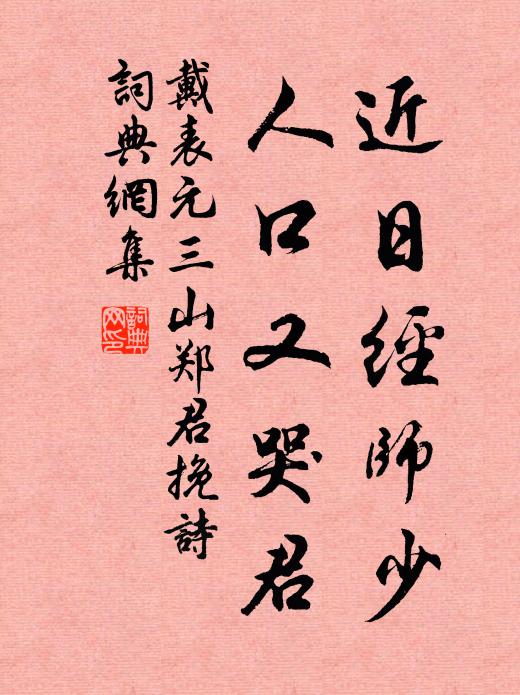 近日經師少
人口又哭君
戴表元三山郑君挽詩
詞典網集
詞典网印